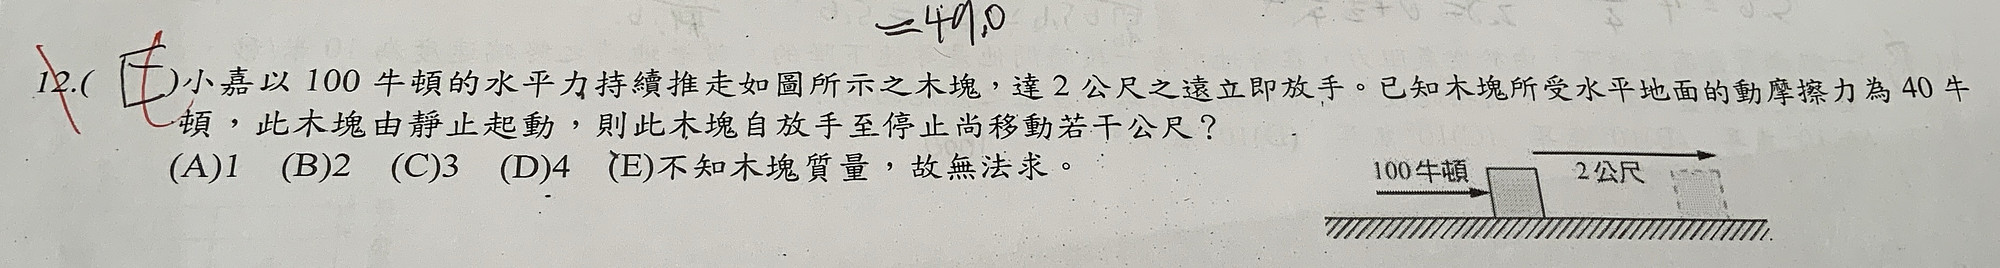 =49.0
12.( E )小嘉以 100 牛頓的水平力持續推走如圖所示之木塊，達 2 公尺之遠立即放手。已知木塊所受水平地面的動摩擦力為 40 牛
頓，此木塊由靜止起動，則此木塊自放手至停止尚移動若干公尺？
(A)1 (B)2 (C)3 (D)4 (E)不知木塊質量，故無法求。
100 牛頓
2 公尺